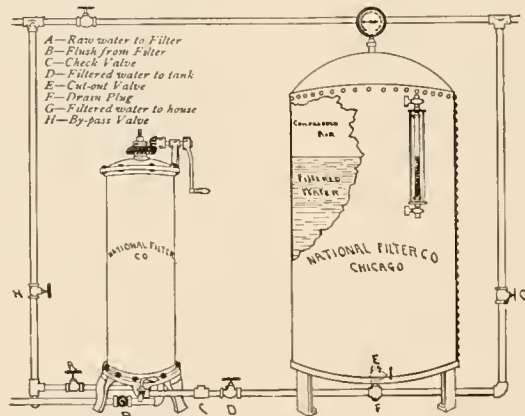 A—Raw water to Filter
B—Flush from Filter
C—Check Valve
D—Filtered water to tank
E—Cut-out Valve
F—Drain Plug
G—Filtered water to house
H—By-pass Valve
COMPRESSED AIR
FILTERED WATER
NATIONAL FILTER CO
NATIONAL FILTER CO
CHICAGO
H
G
E
B
C
D
F